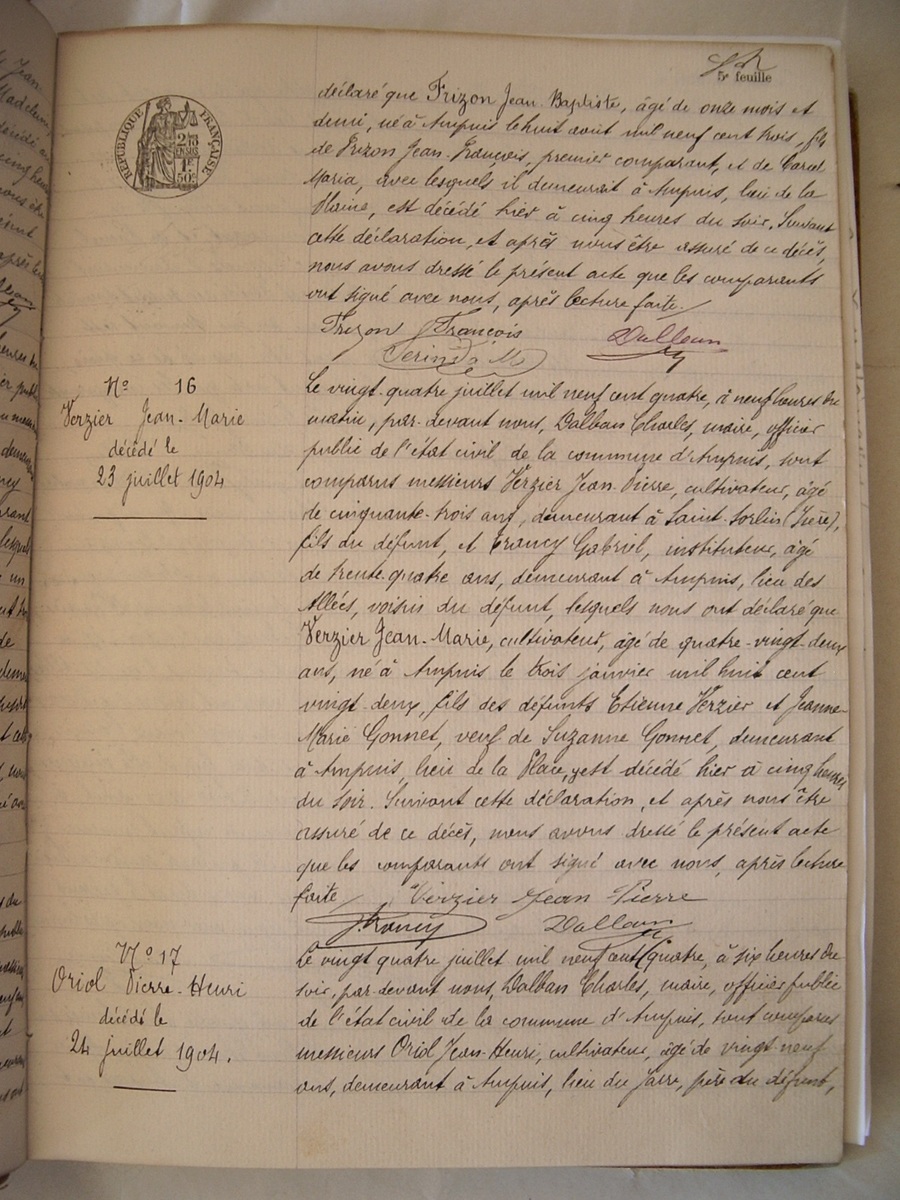 5e feuille
RÉPUBLIQUE FRANÇAISE
déclaré que Frizon Jean Baptiste, âgé de onze mois et
demi, né à Ampuis le huit août mil neuf cent trois, fils
de Frizon Jean-François, premier comparant, et de
Maria, avec lesquels il demeurait à Ampuis, lieu de la
Plaine, est décédé hier à cinq heures du soir. Suivant
cette déclaration, et après nous être assuré de ce décès,
nous avons dressé le présent acte que les comparants
ont signé avec nous, après lecture faite.
Frizon François Dalban
No 16
Verzier Jean-Marie
décédé le
23 juillet 1904
Le vingt-quatre juillet mil neuf cent quatre, à neuf heures du
matin, par-devant nous, Dalban Charles, maire, officier
public de l'état civil de la commune d'Ampuis, sont
comparus messieurs Verzier Jean-Pierre, cultivateur, âgé
de cinquante-trois ans, demeurant à Saint-Sorlin (Isère),
fils du défunt, et Francy Gabriel, instituteur, âgé
de trente-quatre ans, demeurant à Ampuis, lieu des
Allées, voisin du défunt, lesquels nous ont déclaré que
Verzier Jean-Marie, cultivateur, âgé de quatre-vingt-deux
ans, né à Ampuis le trois janvier mil huit cent
vingt-deux, fils des défunts Etienne Verzier et Jeanne-
Marie Gonnet, veuf de Suzanne Gonnet, demeurant
à Ampuis, lieu de la Place, y est décédé hier à cinq heures
du soir. Suivant cette déclaration, et après nous être
assuré de ce décès, nous avons dressé le présent acte
que les comparants ont signé avec nous, après lecture
faite. Verzier Jean Pierre
Francy Dalban
No 17
Oriol Pierre-Henri
décédé le
24 juillet 1904.
Le vingt quatre juillet mil neuf cent quatre, à six heures du
soir, par-devant nous, Dalban Charles, maire, officier public
de l'état civil de la commune d'Ampuis, sont comparus
messieurs Oriol Jean-Henri, cultivateur, âgé de vingt-neuf
ans, demeurant à Ampuis, lieu du père du défunt,